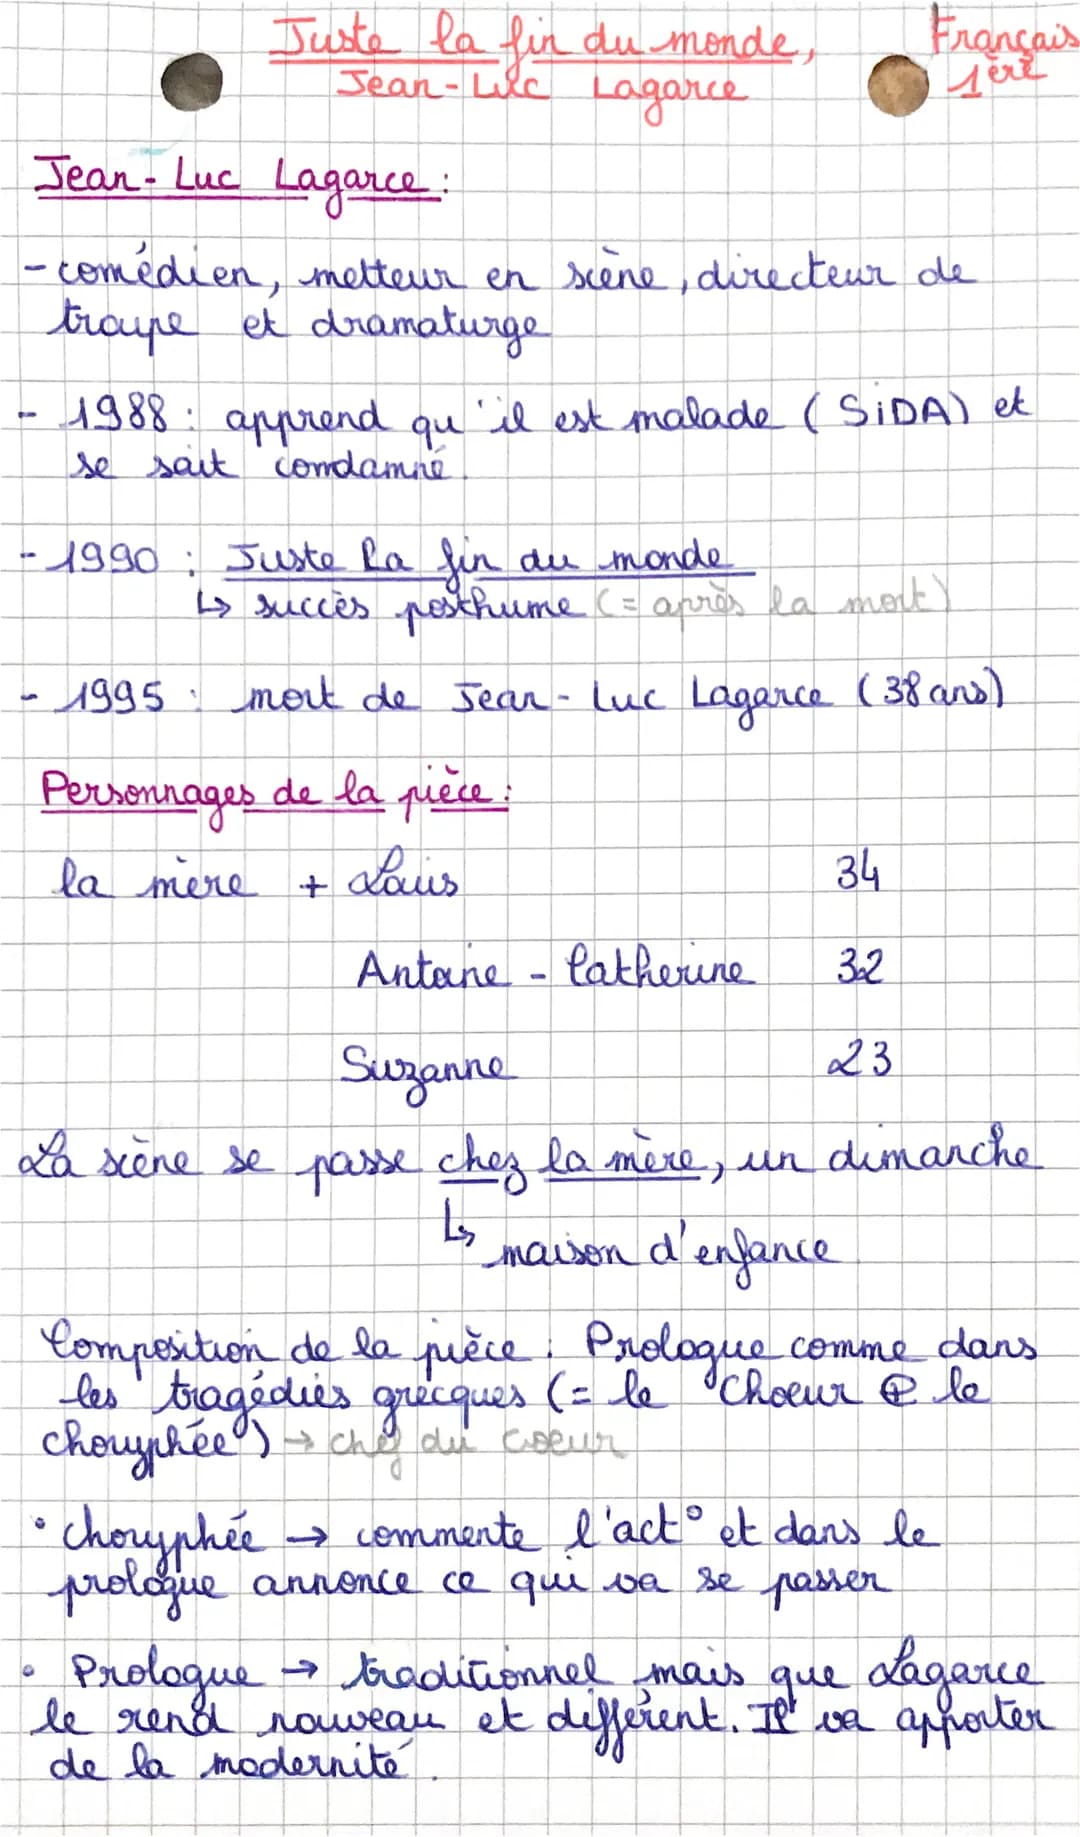 Juste la fin du monde,
Français
Jean-Luc Lagarce
1ère
Jean-Luc Lagarce :
- comédien, metteur en scène, directeur de
troupe et dramaturge
- 1988 : apprend qu'il est malade (SiDA) et
se sait condamné.
- 1990 : Juste la fin du monde
↳ succès posthume (= après la mort)
- 1995 : mort de Jean-Luc Lagarce (38 ans)
Personnages de la pièce :
la mère + Louis 34
Antoine - Catherine 32
Suzanne 23
La scène se passe chez la mère, un dimanche
↳ maison d'enfance
Composition de la pièce : Prologue comme dans
les tragédies grecques (= le "choeur @ le
choryphée") → chef du coeur
• choryphée → commente l'act° et dans le
prologue annonce ce qui va se passer
• Prologue → traditionnel mais que Lagarce
le rend nouveau et différent. Il va apporter
de la modernité.